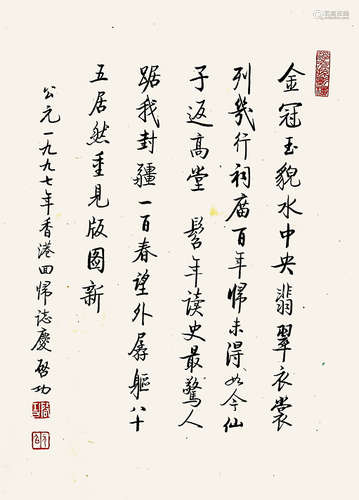 金冠玉貌水中央翡翠衣裳
列幾行祠廟百年歸未得如今仙
子返高堂 髫年读史最驚人
踞我封疆一百春望外孱軀八十
五居然重見版圖新
公元一九九七年香港回歸誌慶 啟功